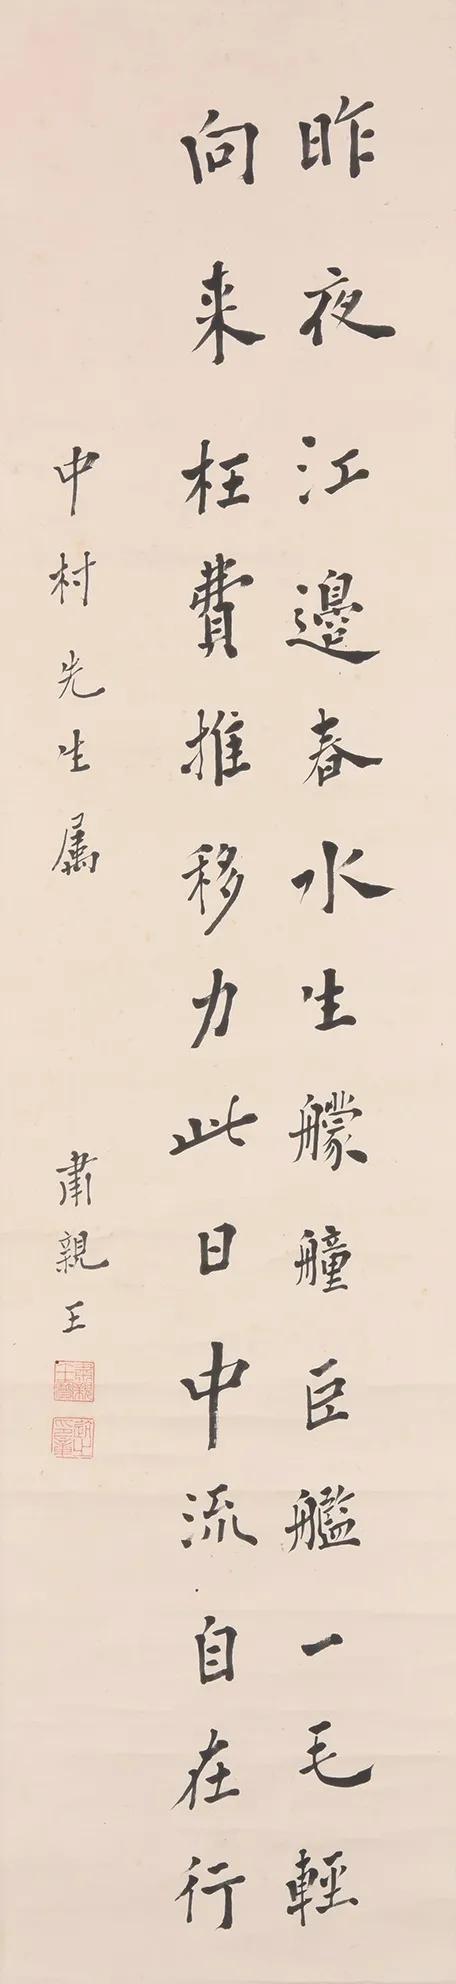 昨夜江邊春水生艨艟臣艦一毛輕
向来枉費推移力此日中流自在行
中村先生属
肅親王